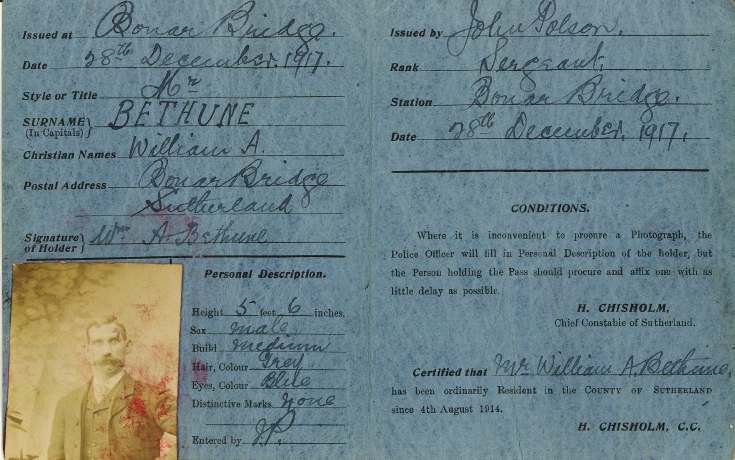 Issued at Bonar Bridge.
Date 28th December. 1917.
Style or Title Mr
SURNAME (In Capitals) } BETHUNE
Christian Names William A.
Postal Address Bonar Bridge
Sutherland
Signature of Holder } Wm A. Bethune
Personal Description.
Height 5 feet 6 inches.
Sex male
Build medium
Hair, Colour Grey
Eyes, Colour Blue
Distinctive Marks none
Entered by J.P.
Issued by John Polson.
Rank Sergeant.
Station Bonar Bridge.
Date 28th December. 1917.
CONDITIONS.
Where it is inconvenient to procure a Photograph, the
Police Officer will fill in Personal Description of the holder, but
the Person holding the Pass should procure and affix one with as
little delay as possible.
H. CHISHOLM,
Chief Constable of Sutherland.
Certified that Mr William A. Bethune,
has been ordinarily Resident in the COUNTY OF SUTHERLAND
since 4th August 1914.
H. CHISHOLM, C.C.